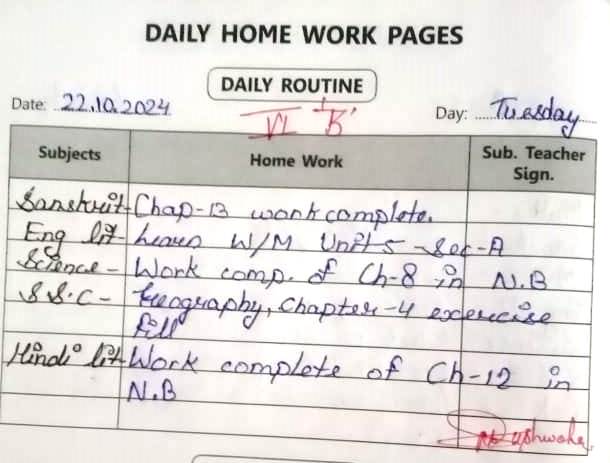 DAILY HOME WORK PAGES
DAILY ROUTINE
Date: 22.10.2024 Day: Tuesday
VI 'B'
Subjects Home Work Sub. Teacher Sign.
Sanskrit - Chap-13 work complete.
Eng lit - Learn W/M Unit 5 - Sec-A
Science - Work comp. of Ch-8 in N.B
S S.C - Geography, Chapter-4 exercise
fill
Hindi lit - Work complete of Ch-12 in
N.B